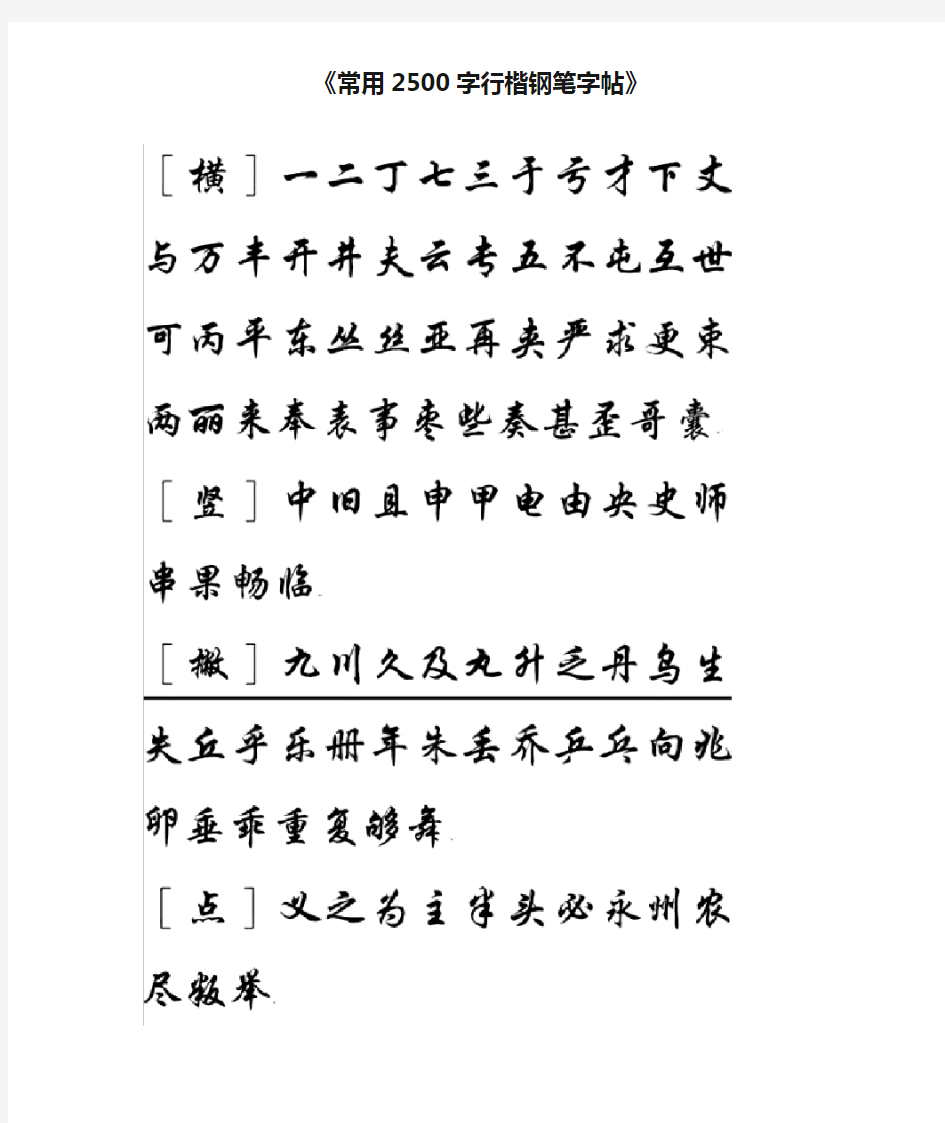 《常用2500字行楷钢笔字帖》
[横]一二丁七三于亏才下丈
与万丰开井夫云专五不屯互世
可丙平东丛丝亚再夹严求更束
两丽来奉表事枣些奏甚歪哥囊.
[竖]中旧且申甲电由央史师
串果畅临.
[撇]九川久及丸升乏丹乌生
失丘乎乐册年朱丢乔乒乓向兆
卵垂乖重复够舞.
[点]义之为主半头必永州农
尽叛举.